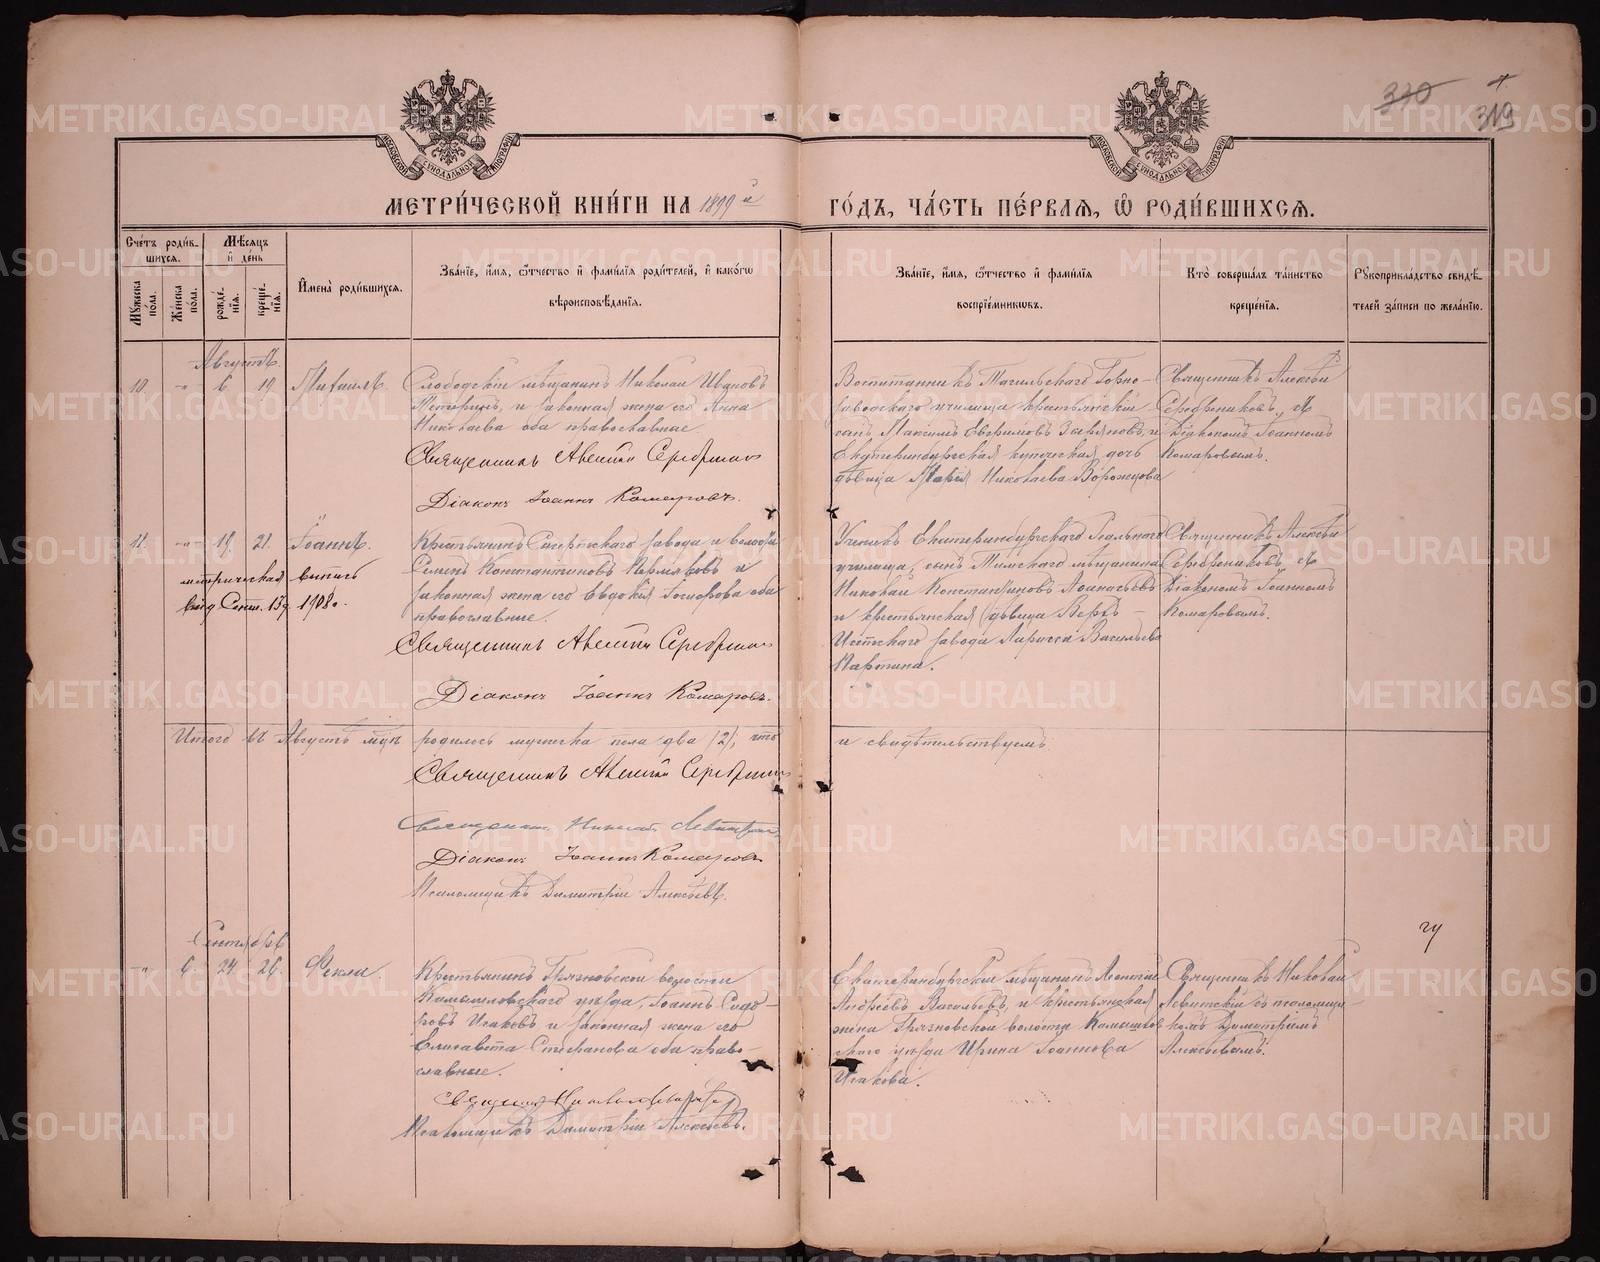 330
319
МОСКОВСКОЙ СѴНОДАЛЬНОЙ ТИПОГРАФІИ
МОСКОВСКОЙ СѴНОДАЛЬНОЙ ТИПОГРАФІИ
МЕТРИ́ЧЕСКОЙ КНИ́ГИ НА 1899й ГО́ДЪ, ЧА́СТЬ ПЕ́РВАѦ, Ѡ РОДИ́ВШИХСѦ.
Сче́тъ роди́в-
шихся.
Мѣ́сяцъ
и҆ де́нь
Мꙋ́жеска по́ла.
Же́нска по́ла.
рожде́-
нїѧ.
креще́-
нїѧ.
И҆мена̀ роди́вшихсѧ.
Зва́нїе, и҆́мѧ, ѻ҆́тчество и҆ фами́лїѧ роди́телей, и҆ како́гѡ
вѣроисповѣ́данїѧ.
Зва́нїе, и҆́мѧ, ѻ҆́тчество и҆ фами́лїѧ
воспрїе́мникѡвъ.
Кто̀ соверша́лъ та́инство
креще́нїѧ.
Рꙋкоприкла́дство свидѣ́-
телей за́писи по жела́нїю.
Августъ
10 - 6 19 Михаилъ.
Слободскій мѣщанинъ Николай Ивановъ
и законная жена его Анна
Николаева оба православные.
Священникъ Алексій Серебренниковъ
Діаконъ Іоаннъ Комаровъ.
Воспитанникъ Тагильскаго Горно-
заводскаго училища крестьянскій
сынъ Максимъ и
Екатеринбургская купеческая дочь
дѣвица Марія Николаева Ворожцова
Священникъ Алексѣй
Серебренниковъ, съ
Діакономъ Іоанномъ
Комаровымъ.
11 - 19 21. Іоаннъ.
метрическая выпись
выд. Сент. 13 д. 1908 г.
Крестьянинъ Сысертскаго завода и волости
Семенъ Константиновъ Пермяковъ и
законная жена его Евдокія оба
православные.
Священникъ Алексій Серебренниковъ
Діаконъ Іоаннъ Комаровъ.
Ученикъ Екатеринбургскаго Реальнаго
училища, сынъ мѣщанина
Николай Константиновъ Аѳанасьевъ
и крестьянская дѣвица Верхъ-
Исетскаго завода Лариса Васильева
Мартина.
Священникъ Алексѣй
Серебренниковъ, съ
Діакономъ Іоанномъ
Комаровымъ.
Итого въ Августѣ м-цѣ родилось мужеска пола два /2/, что и свидѣтельствуемъ.
Священникъ Алексій Серебренниковъ
Священникъ Николай Левитскій
Діаконъ Іоаннъ Комаровъ
Псаломщикъ Димитрій Алексѣевъ.
Сентябрь
- 6. 24 26. Ѳекла.
Крестьянинъ Грязновской волости
Камышловскаго уѣзда, Іоаннъ Сидо-
ровъ Исаковъ и законная жена его
Елисавета Стефанова оба право-
славные.
Священникъ Николай Левитскій
Псаломщикъ Димитрій Алексѣевъ.
Екатеринбургскій мѣщанинъ Леонтій
Андреевъ Васильевъ, и крестьянская
жена Грязновской волости Камышлов-
скаго уѣзда Ирина Іоаннова
Исакова.
Священникъ Николай
Левитскій съ псаломщи-
комъ Димитріемъ
Алексѣевымъ.
METRIKI.GASO-URAL.RU